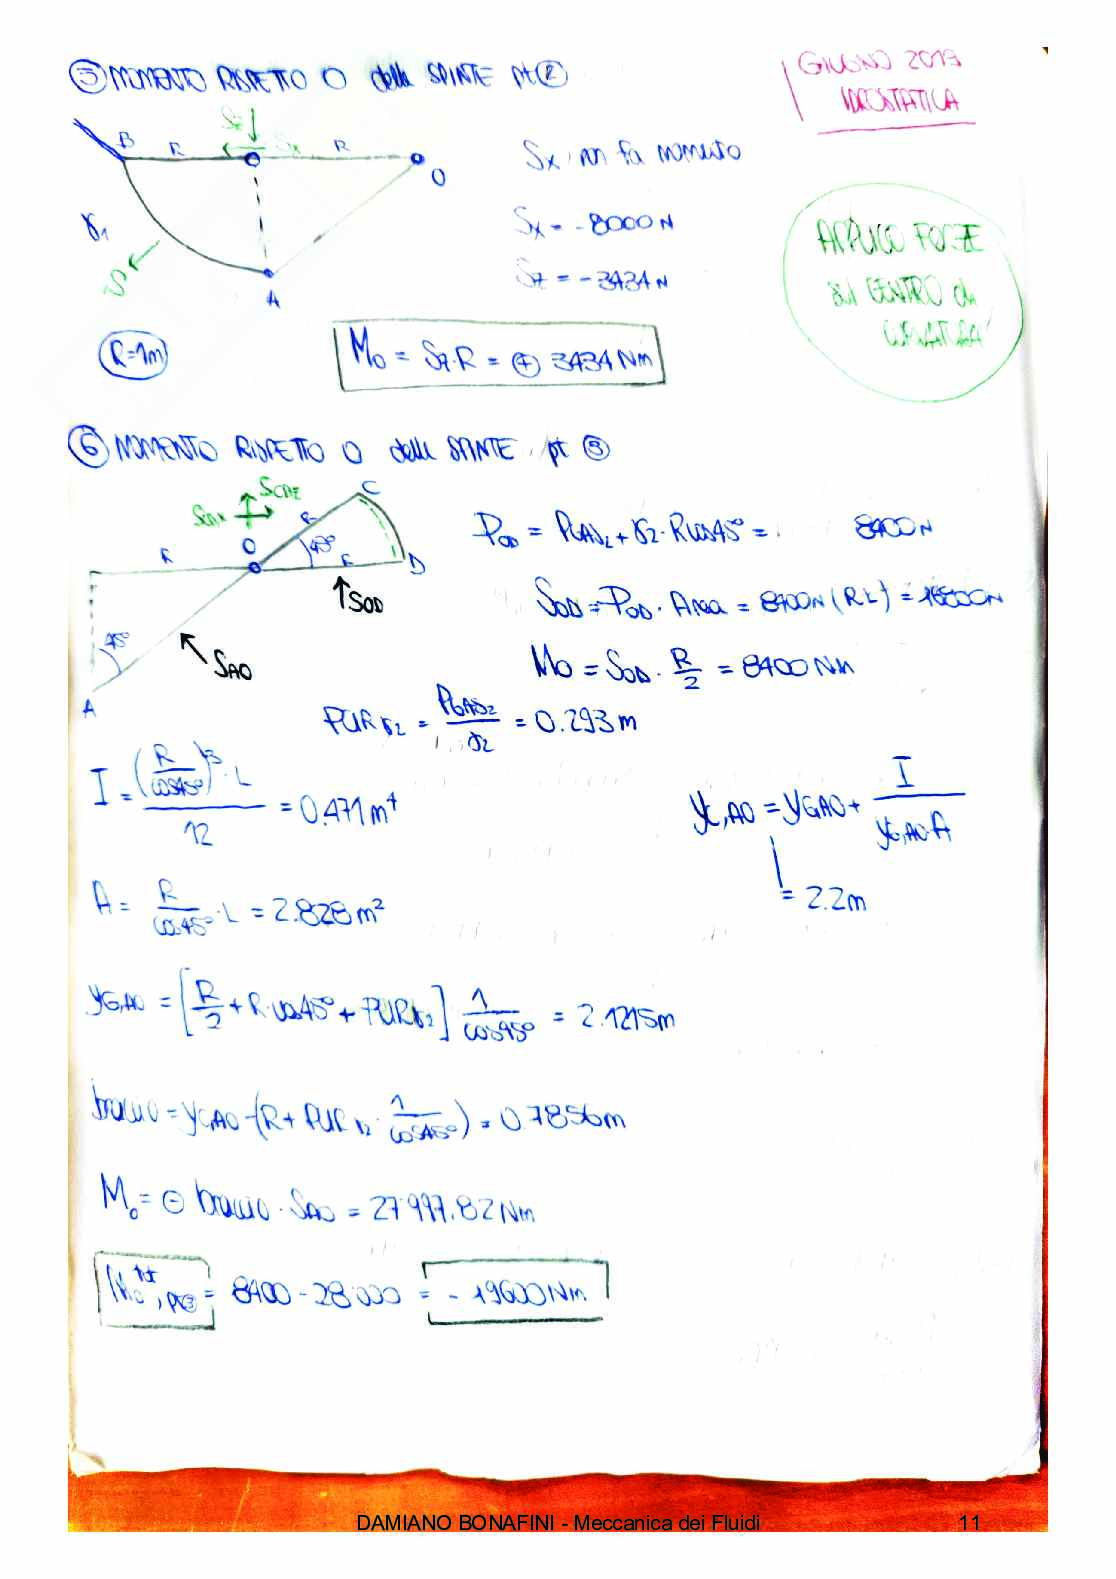 ⑤ MOMENTO RISPETTO O delle SPINTE pt ②
GIUGNO 2019
IDROSTATICA
B R Sz Sx R O
γ1
S
A
Sx non fa momento
Sx = -8000 N
Sz = -3434 N
APPLICO FORZE
sul CENTRO di
CURVATURA
R=1m
Mo = Sz·R = ⊕ 3434 Nm
⑥ MOMENTO RISPETTO O delle SPINTE pt ③
SCDx SCDz C
R O R 45° R D
SOD
45°
SAO
A
POD = PGAS2 + γ2·Rcos45° = 8400 N
SOD = POD · Area = 8400N (RL) = 16800N
Mo = SOD · R/2 = 8400 Nm
PCIR γ2 = PGAS2/γ2 = 0.293 m
I = (R/cos45°)^3 · L / 12 = 0.471 m^4
yC,AO = yG,AO + I / yG,AO·A
= 2.2m
A = R/cos45° · L = 2.828 m²
yG,AO = [R/2 + R·cos45° + PCIRγ2] 1/cos45° = 2.1215m
braccio = yC,AO - (R + PCIR γ2 · 1/cos45°) = 0.7856m
Mo = ⊖ braccio · SAO = 27'997.82 Nm
Mo tot, pt③ = 8400 - 28'000 = - 19600 Nm
DAMIANO BONAFINI - Meccanica dei Fluidi 11